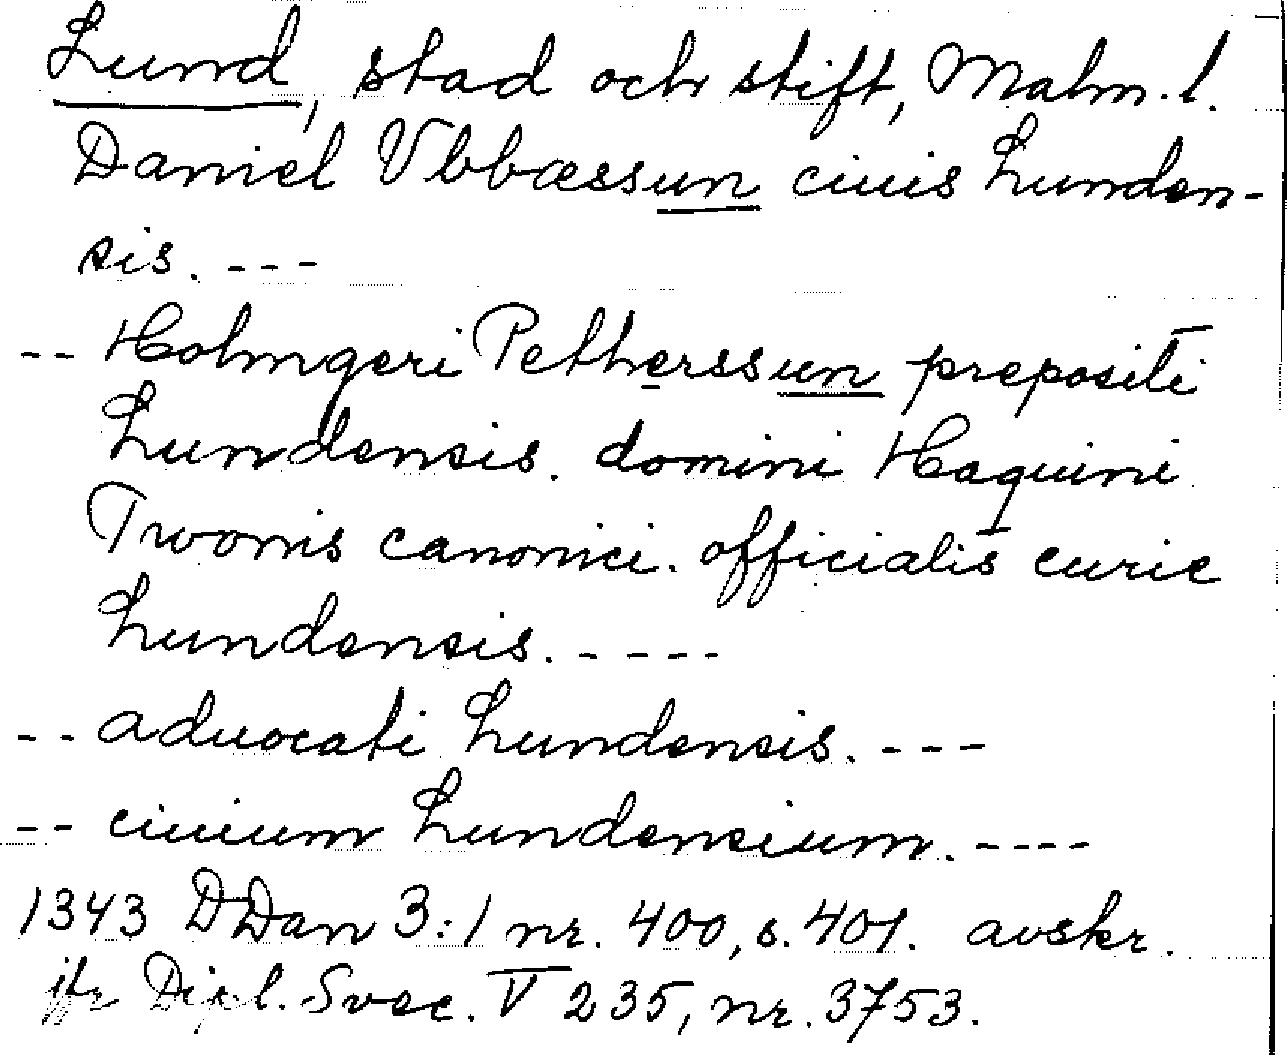 Lund, stad och stift, Malm. l.
Daniel Vbbæssun ciuis Lunden-
sis. ---
-- Holmgeri Petherssun prepositi
Lundensis. domini Haquini
Twonis canonici. officialis curie
Lundensis. -----
-- aduocati Lundensis. ---
-- ciuium Lundensium. ----
1343 DDan 3:1 nr. 400, s. 401. avskr.
jfr Dipl. Svec. V 235, nr. 3753.